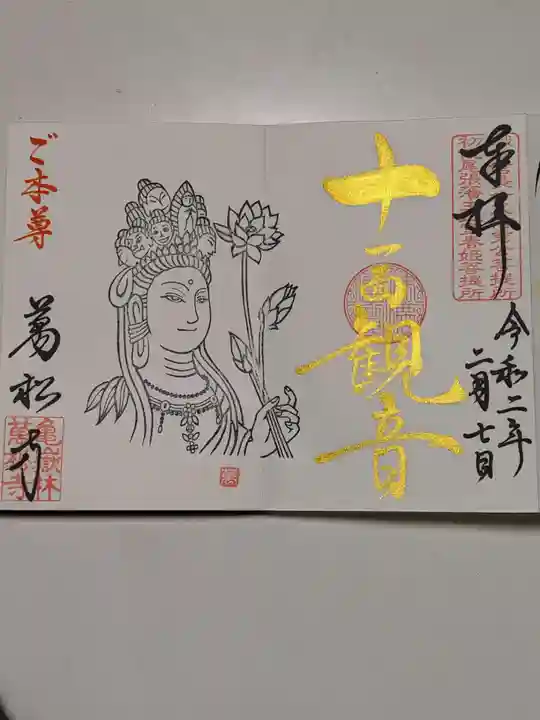 奉拝
令和二年
二月七日
十一面観音
ご本尊
萬松寺
亀嶽林
萬松寺